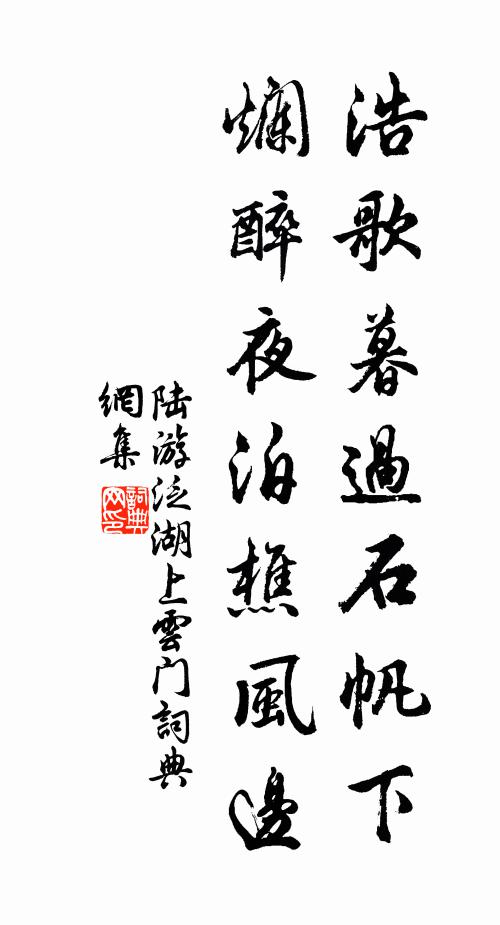 浩歌暮過石帆下
爛醉夜泊樵風邊
陆游泛湖上雲门詞典
網集
詞典
网印